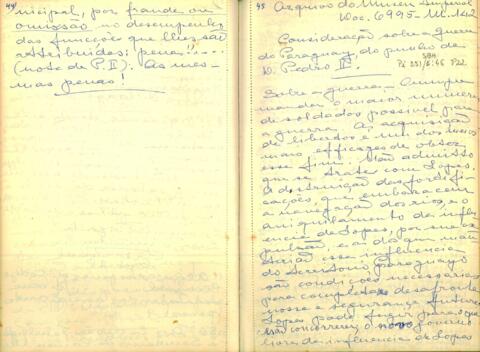 44
nicipal, por fraude, ou
omissão no desempenho
das funcções que lhes são
attribuidas: pena!!....
(nota de P.II). As mes-
mas penas!
45
Arquivo do Museu Imperial
Doc. 6995 - M. 142
Consideração sobre a guerra
do Paraguay, do punho de
D. Pedro II.
Sobre a guerra - Cumpre
mandar o maior numero
de soldados possivel para
a guerra. A acquisição
de libertos é um dos meios
mais efficazes de obter
esse fim. Não admitto
que se trate com Lopes.
A destruição das fortifi-
cações, que embaracem
a navegação dos rios, e o
aniquilamento da influ-
encia de Lopes, por sua ex-
pulsão,
essa influencia
do territorio Paraguayo
são condições necessarias
para completa desafronta
nossa e segurança futura
Lopes pode fugir para o que
não concorrerei, o novo governo
livre da influencia de Lopes